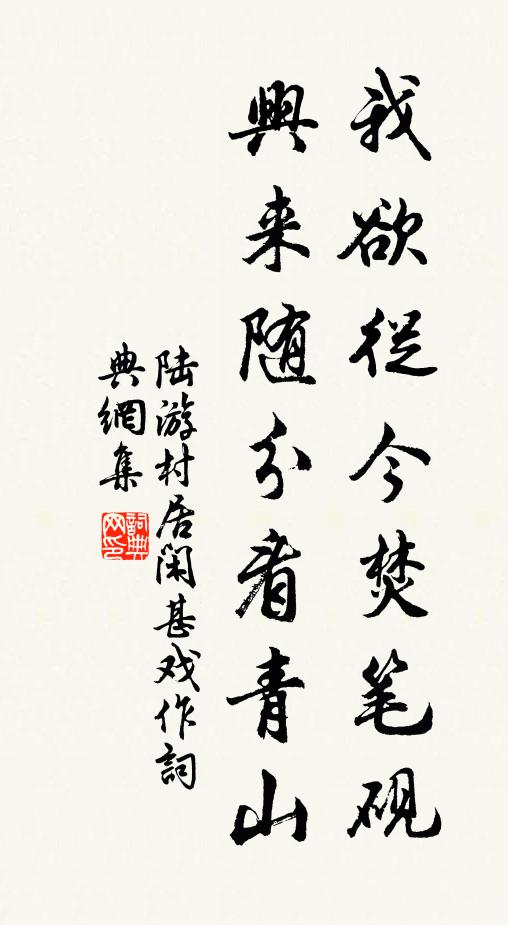 我欲從今焚笔硯
興来随分看青山
陆游村居闲甚戏作詞
典網集
詞典
网印